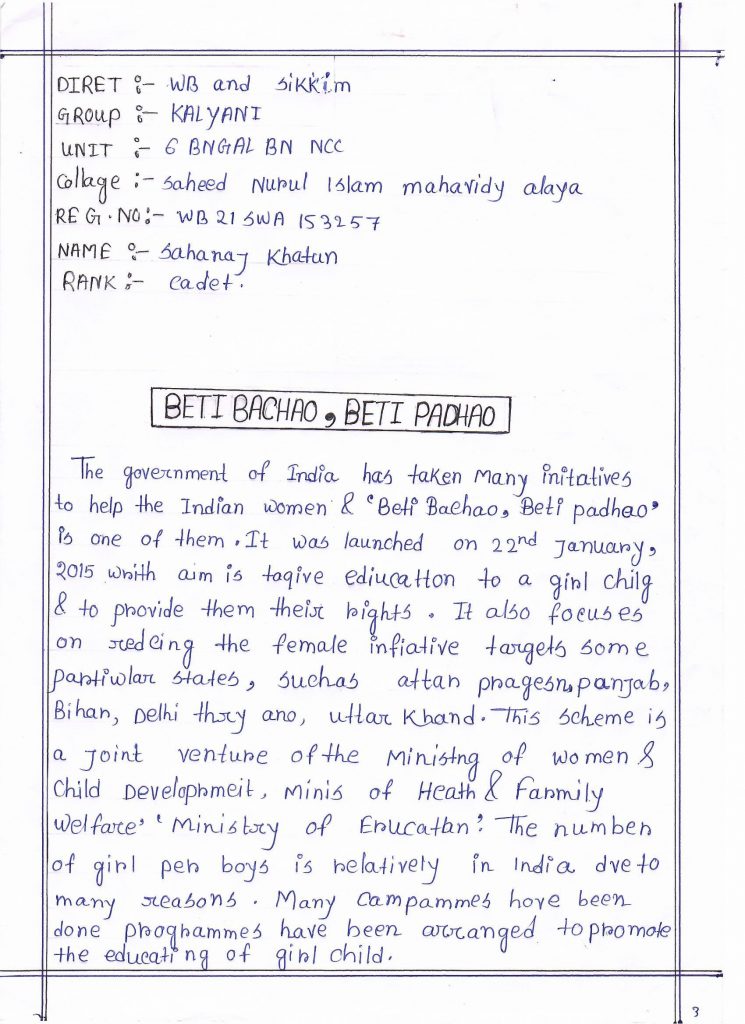 DIRET :- WB and sikkim
GROUP :- KALYANI
UNIT :- 6 BNGAL BN NCC
Collage :- Saheed Nurul Islam mahavidy alaya
REG.NO:- WB 21 SWA 153257
NAME :- Sahanaj Khatun
RANK :- cadet.
BETI BACHAO, BETI PADHAO
The government of India has taken Many initatives
to help the Indian women & 'Beti Bachao, Beti padhao'
is one of them. It was launched on 22nd January,
2015 wnith aim is togive ediucatton to a girl chilg
& to provide them their rights. It also focuses
on redcing the female infiative targets some
partiwlar states, suchas attan pragesn, panjab,
Bihar, Delhi thry ano, uttar Khand. This scheme is
a joint venture of the Ministng of women &
Child Developmeit, Minis of Heath & Fanmily
welfare' 'Ministry of Enucatbn'. The number
of girl per boys is relatively in India dveto
many reasons. Many campammes hove been
done programmes have been arranged to promote
the educati ng of girl child.
3